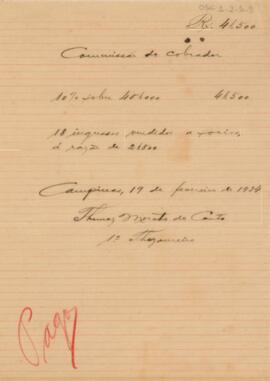 Rs. 4$500
Commissão do cobrador
10% sobre 45$000 4$500
18 ingressos vendidos a socios,
á razão de 2$500
Campinas, 19 de fevereiro de 1934
Thomaz de Canto
1º Thezoureiro
Pago